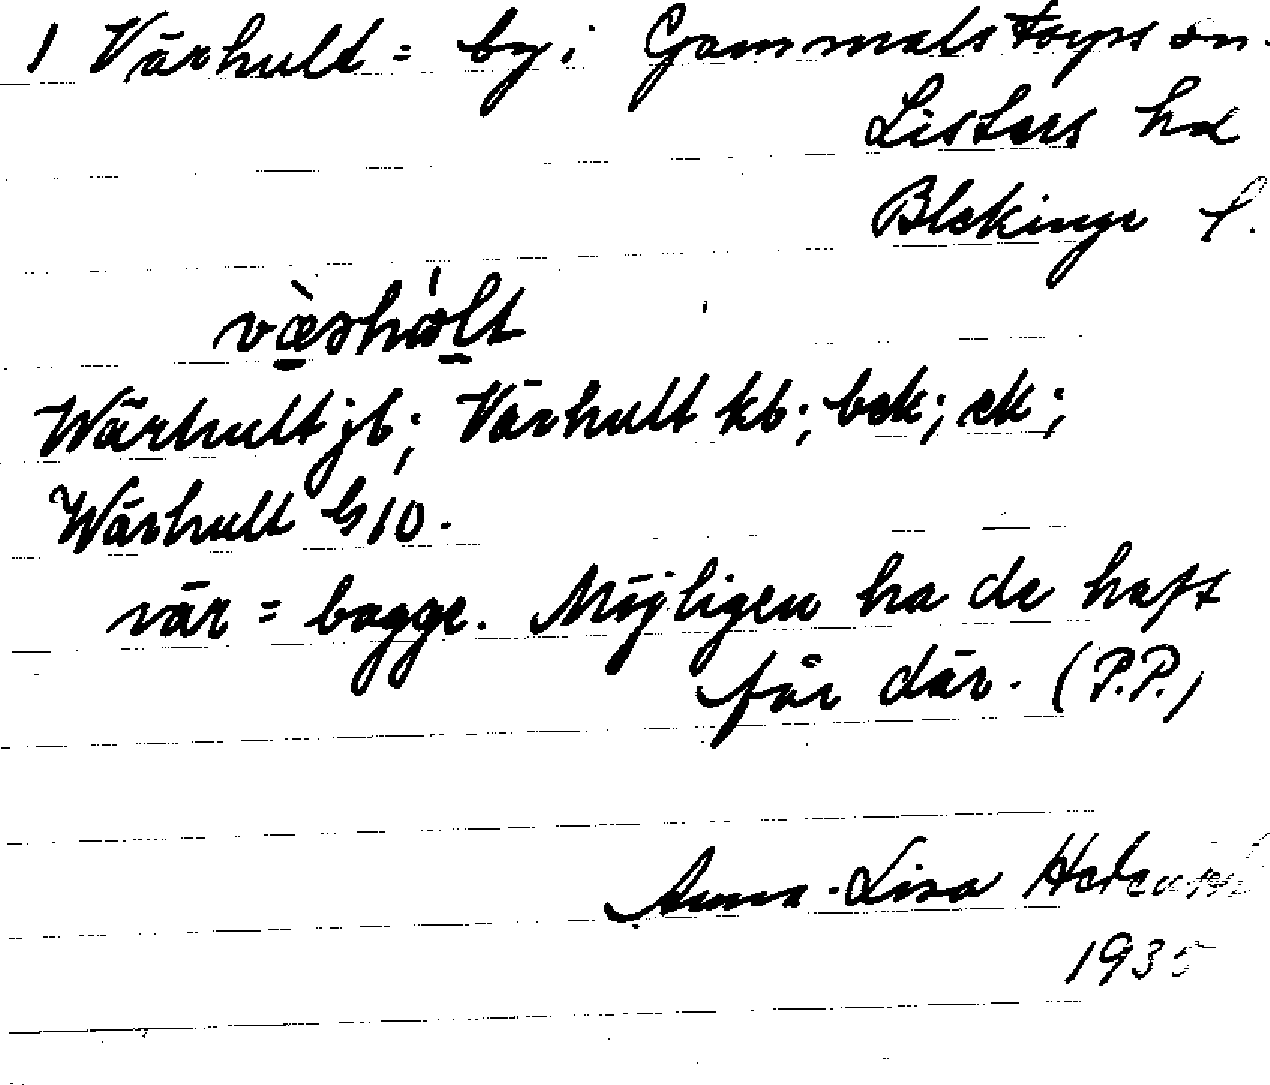 1 Värhult = by i Gammalstorps sn.
Listers hd
Blekinge l.
Wärhult jb; Värhult kb; bek; ek;
Wärhult G 10.
vär = bagge. Möjligen ha de haft
får där. (P.P.)
Anna-Lisa
1935